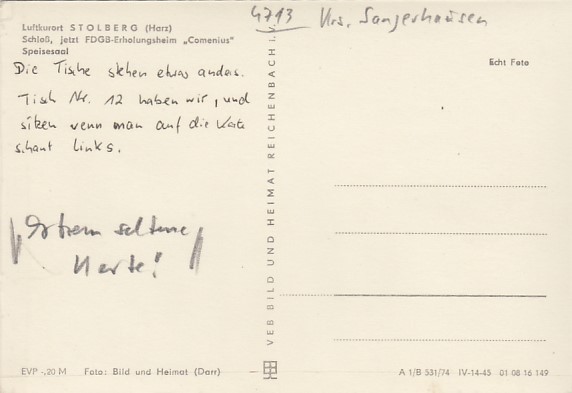 4713 Krs. Sangerhausen
Luftkurort STOLBERG (Harz)
Schloß, jetzt FDGB-Erholungsheim „Comenius"
Speisesaal
Echt Foto
Die Tische stehen etwas anders.
Tisch Nr. 12 haben wir, und
sitzen wenn man auf die Karte
schaut links.
Extrem seltene
Karte!
VEB BILD UND HEIMAT REICHENBACH I. V.
EVP -,20 M Foto: Bild und Heimat (Darr)
A 1/B 531/74 IV-14-45 01 08 16 149